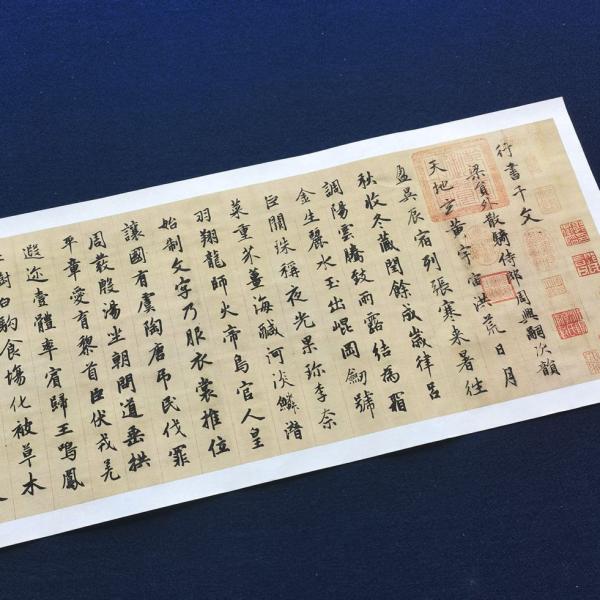 行書千文
梁員外散騎侍郎周興嗣次韻
天地玄黃宇宙洪荒日月
盈昃辰宿列張寒来暑往
秋收冬藏閏餘成歲律呂
調陽雲騰致雨露結為霜
金生麗水玉出崐岡劎號
巨闕珠稱夜光果珎李柰
菜重芥薑海鹹河淡鱗潛
羽翔龍師火帝鳥官人皇
始制文字乃服衣裳推位
讓國有虞陶唐弔民伐罪
周發殷湯坐朝問道垂拱
平章愛育黎首臣伏戎羌
遐迩壹體率賓歸王鳴鳳
樹白駒食場化被草木